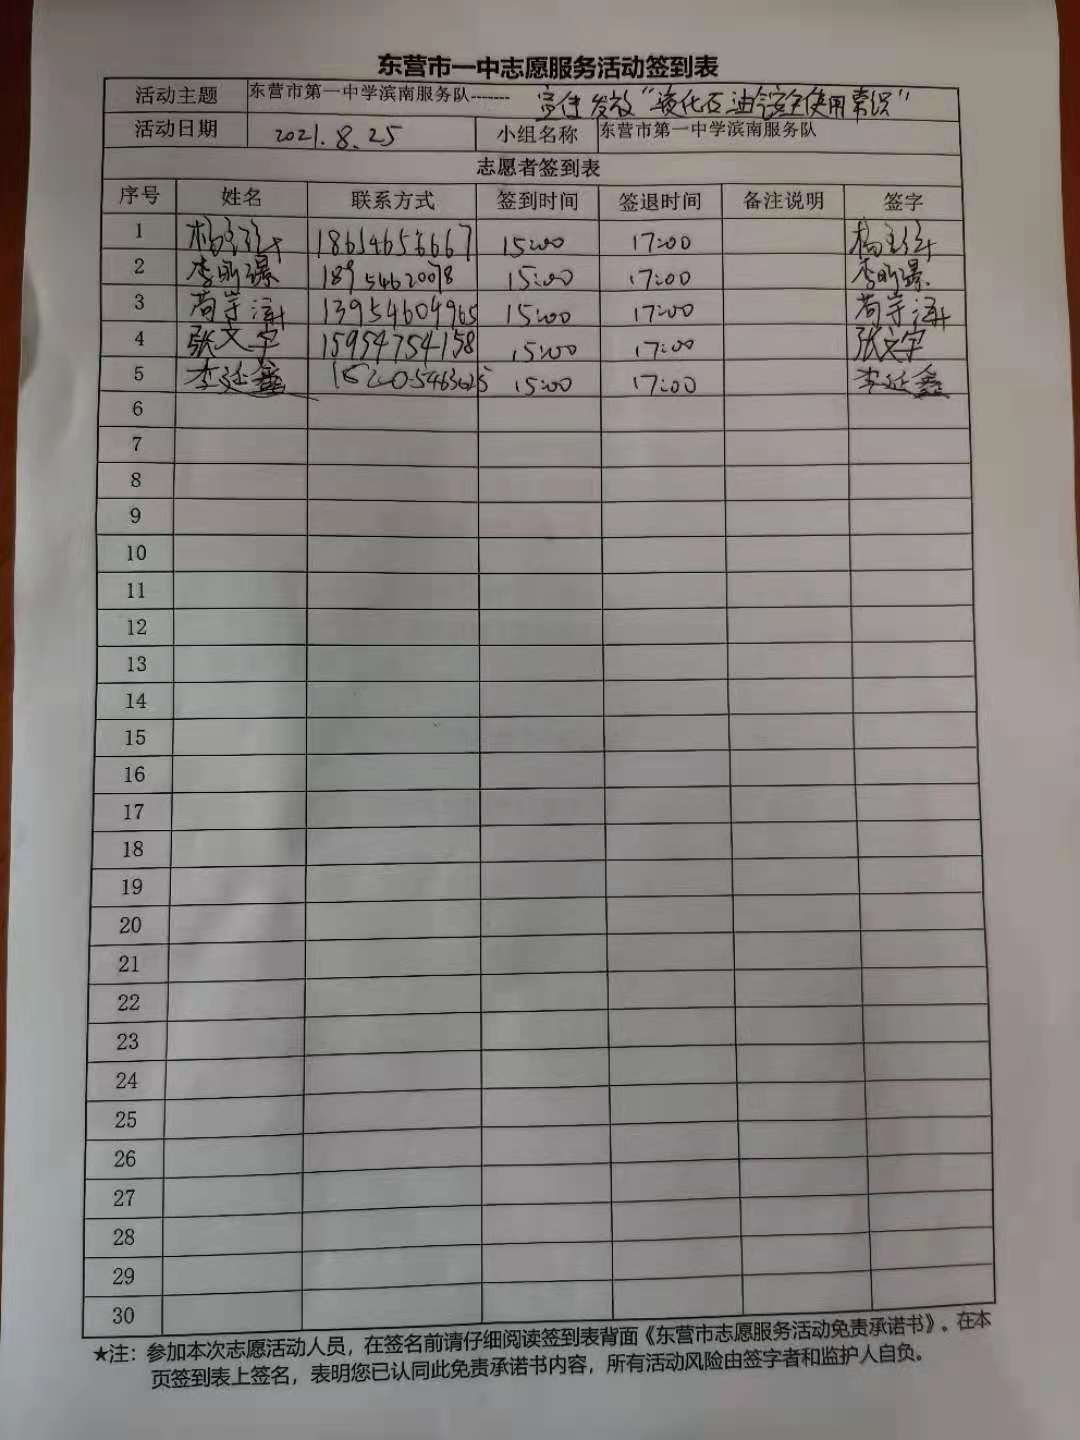 东营市一中志愿服务活动签到表
活动主题 东营市第一中学滨南服务队------- 宣传发放"液化石油气安全使用常识"
活动日期 2021.8.25 小组名称 东营市第一中学滨南服务队
志愿者签到表
序号 姓名 联系方式 签到时间 签退时间 备注说明 签字
1 15:00 17:00
2 李明璟 18954620078 15:00 17:00 李明璟
3 13954604965 15:00 17:00
4 张文宇 15954754158 15:00 17:00 张文宇
5 李延鑫 15:00 17:00 李延鑫
6
7
8
9
10
11
12
13
14
15
16
17
18
19
20
21
22
23
24
25
26
27
28
29
30
★注：参加本次志愿活动人员，在签名前请仔细阅读签到表背面《东营市志愿服务活动免责承诺书》。在本
页签到表上签名，表明您已认同此免责承诺书内容，所有活动风险由签字者和监护人自负。